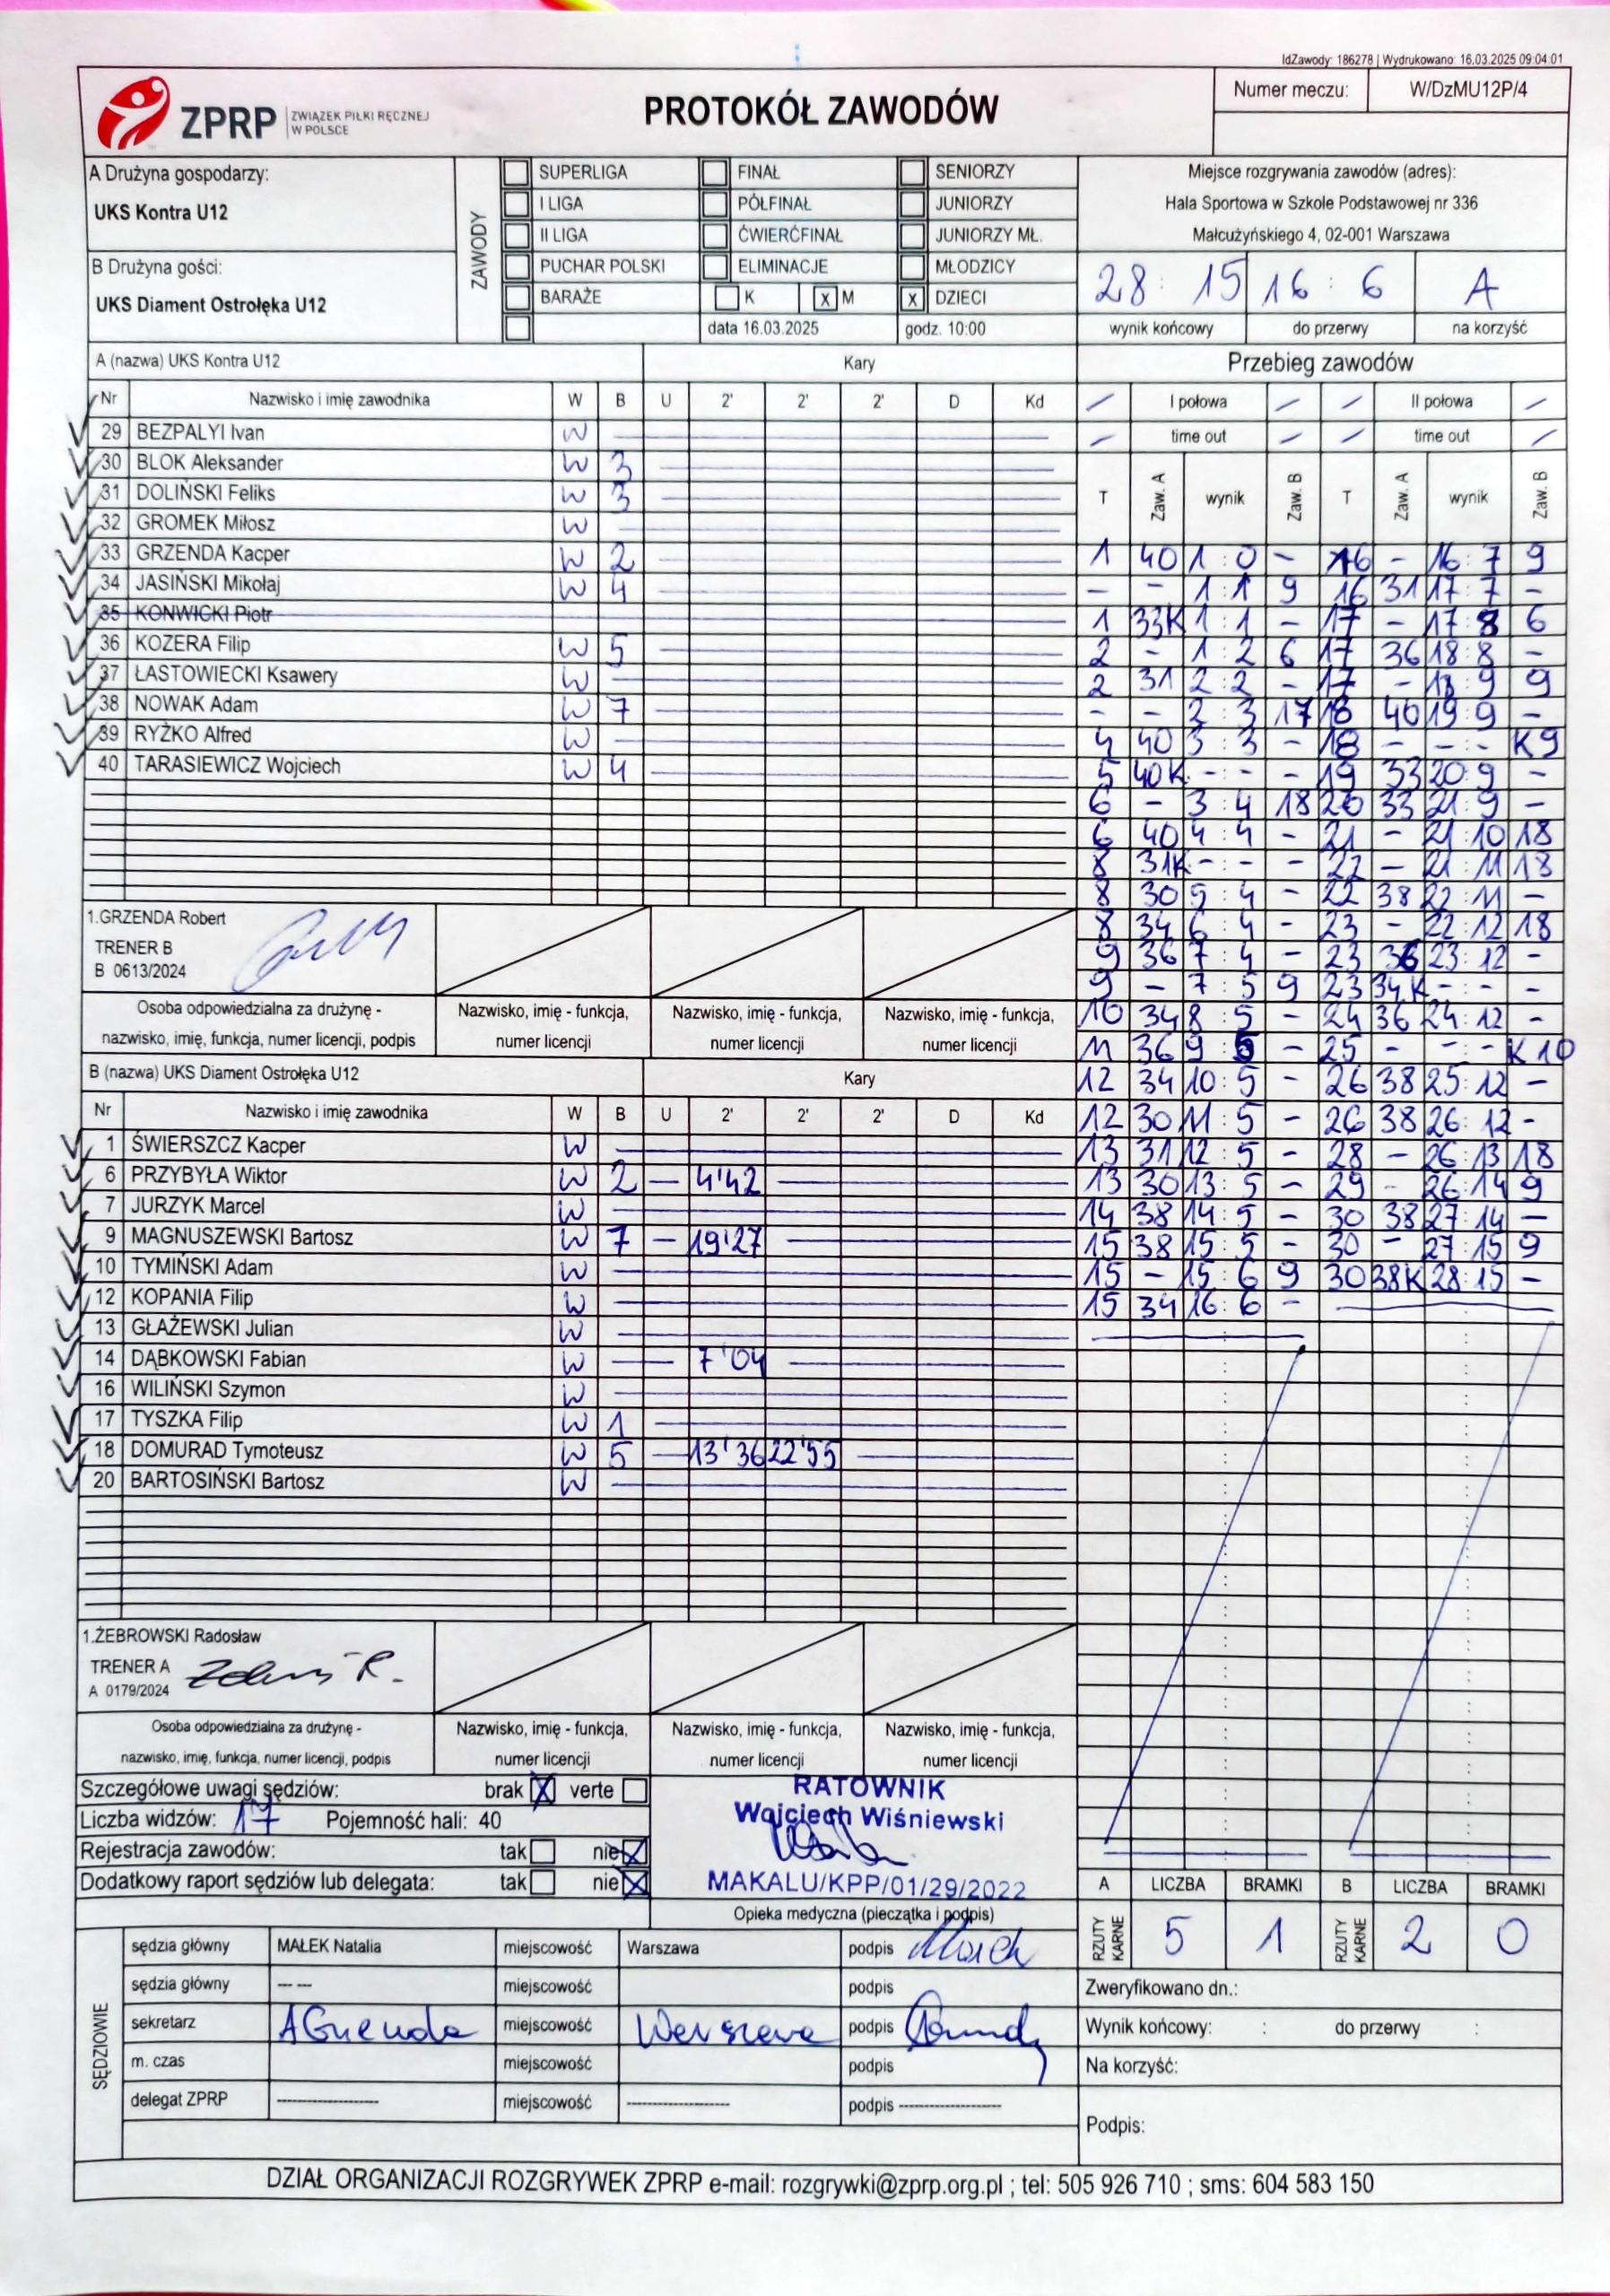 IdZawody: 186278 | Wydrukowano: 16.03.2025 09:04:01
ZPRP ZWIĄZEK PIŁKI RĘCZNEJ
W POLSCE
PROTOKÓŁ ZAWODÓW
Numer meczu: W/DzMU12P/4
A Drużyna gospodarzy:
UKS Kontra U12
B Drużyna gości:
UKS Diament Ostrołęka U12
ZAWODY
SUPERLIGA FINAŁ SENIORZY
I LIGA PÓŁFINAŁ JUNIORZY
II LIGA ĆWIERĆFINAŁ JUNIORZY MŁ.
PUCHAR POLSKI ELIMINACJE MŁODZICY
BARAŻE K X M X DZIECI
data 16.03.2025 godz. 10:00
Miejsce rozgrywania zawodów (adres):
Hala Sportowa w Szkole Podstawowej nr 336
Małcużyńskiego 4, 02-001 Warszawa
28 : 15 16 : 6 A
wynik końcowy do przerwy na korzyść
A (nazwa) UKS Kontra U12 Kary
Nr Nazwisko i imię zawodnika W B U 2' 2' 2' D Kd
29 BEZPALYI Ivan W
30 BLOK Aleksander W 3
31 DOLIŃSKI Feliks W 3
32 GROMEK Miłosz W
33 GRZENDA Kacper W 2
34 JASIŃSKI Mikołaj W 4
35 KONWICKI Piotr
36 KOZERA Filip W 5
37 ŁASTOWIECKI Ksawery W
38 NOWAK Adam W 7
39 RYŻKO Alfred W
40 TARASIEWICZ Wojciech W 4
1.GRZENDA Robert
TRENER B
B 0613/2024
Osoba odpowiedzialna za drużynę -
nazwisko, imię, funkcja, numer licencji, podpis
Nazwisko, imię - funkcja,
numer licencji
Nazwisko, imię - funkcja,
numer licencji
Nazwisko, imię - funkcja,
numer licencji
B (nazwa) UKS Diament Ostrołęka U12 Kary
Nr Nazwisko i imię zawodnika W B U 2' 2' 2' D Kd
1 ŚWIERSZCZ Kacper W
6 PRZYBYŁA Wiktor W 2 — 4'42
7 JURZYK Marcel W
9 MAGNUSZEWSKI Bartosz W 7 — 19'27
10 TYMIŃSKI Adam W
12 KOPANIA Filip W
13 GŁAŻEWSKI Julian W
14 DĄBKOWSKI Fabian W — 7'04
16 WILIŃSKI Szymon W
17 TYSZKA Filip W 1
18 DOMURAD Tymoteusz W 5 — 13'36 22'55
20 BARTOSIŃSKI Bartosz W
1.ŻEBROWSKI Radosław
TRENER A
A 0179/2024
Osoba odpowiedzialna za drużynę -
nazwisko, imię, funkcja, numer licencji, podpis
Nazwisko, imię - funkcja,
numer licencji
Nazwisko, imię - funkcja,
numer licencji
Nazwisko, imię - funkcja,
numer licencji
Przebieg zawodów
I połowa II połowa
time out time out
T Zaw. A wynik Zaw. B T Zaw. A wynik Zaw. B
1 40 1 : 0 - 16 - 16 : 7 9
- - 1 : 1 9 16 31 17 : 7 -
1 33K 1 : 1 - 17 - 17 : 8 6
2 - 1 : 2 6 17 36 18 : 8 -
2 31 2 : 2 - 17 - 18 : 9 9
- - 2 : 3 17 18 40 19 : 9 -
4 40 3 : 3 - 18 - - : - K9
5 40K - : - - 19 33 20 : 9 -
6 - 3 : 4 18 20 33 21 : 9 -
6 40 4 : 4 - 21 - 21 : 10 18
8 31K - : - - 22 - 21 : 11 18
8 30 5 : 4 - 22 38 22 : 11 -
8 34 6 : 4 - 23 - 22 : 12 18
9 36 7 : 4 - 23 36 23 : 12 -
9 - 7 : 5 9 23 34K - : - -
10 34 8 : 5 - 24 36 24 : 12 -
11 36 9 : 5 - 25 - - : - K10
12 34 10 : 5 - 26 38 25 : 12 -
12 30 11 : 5 - 26 38 26 : 12 -
13 31 12 : 5 - 28 - 26 : 13 18
13 30 13 : 5 - 29 - 26 : 14 9
14 38 14 : 5 - 30 38 27 : 14 -
15 38 15 : 5 - 30 - 27 : 15 9
15 - 15 : 6 9 30 38K 28 : 15 -
15 34 16 : 6 -
Szczegółowe uwagi sędziów: brak X verte
Liczba widzów: 17 Pojemność hali: 40
Rejestracja zawodów: tak nie X
Dodatkowy raport sędziów lub delegata: tak nie X
RATOWNIK
Wojciech Wiśniewski
MAKALU/KPP/01/29/2022
Opieka medyczna (pieczątka i podpis)
A LICZBA BRAMKI B LICZBA BRAMKI
RZUTY KARNE 5 1 RZUTY KARNE 2 0
SĘDZIOWIE
sędzia główny MAŁEK Natalia miejscowość Warszawa podpis
sędzia główny --- --- miejscowość podpis
sekretarz miejscowość podpis
m. czas miejscowość podpis
delegat ZPRP -------------------- miejscowość -------------------- podpis --------------------
Zweryfikowano dn.:
Wynik końcowy: : do przerwy :
Na korzyść:
Podpis:
DZIAŁ ORGANIZACJI ROZGRYWEK ZPRP e-mail: rozgrywki@zprp.org.pl ; tel: 505 926 710 ; sms: 604 583 150